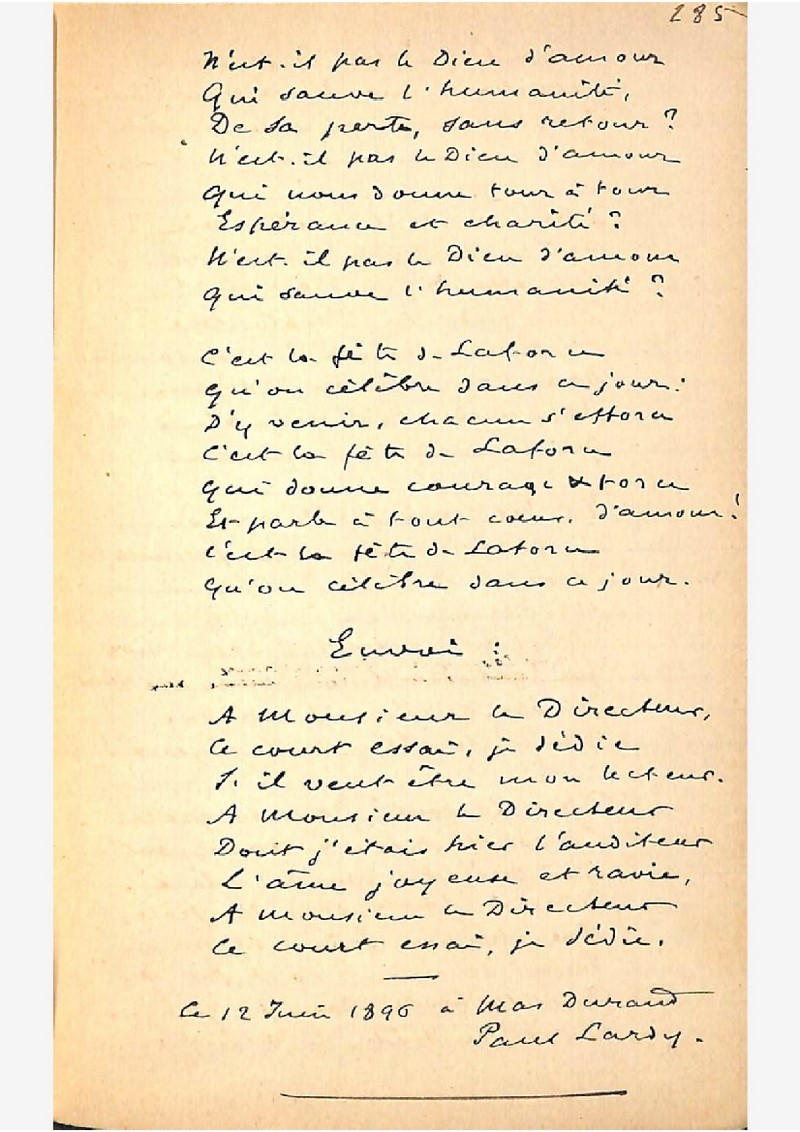 285
N'est-il pas le Dieu d'amour
Qui sauve l'humanité,
De sa perte, sans retour ?
N'est-il pas le Dieu d'amour
Qui nous donne tour à tour
Espérance et charité ?
N'est-il pas le Dieu d'amour
Qui sauve l'humanité ?
C'est la fête de Laforce
Qu'on célèbre dans ce jour :
D'y venir, chacun s'efforce
C'est la fête de Laforce
Qui donne courage & force
Et parle à tout coeur, d'amour !
C'est la fête de Laforce
Qu'on célèbre dans ce jour.
Envoi :
A Monsieur le Directeur,
Ce court essai, je dédie
S'il veut être mon lecteur.
A Monsieur le Directeur
Dont j'étais hier l'auditeur
L'âme joyeuse et ravie,
A Monsieur le Directeur
Ce court essai, je dédie.
Le 12 Juin 1896 à Mas Durand
Paul Lardy.